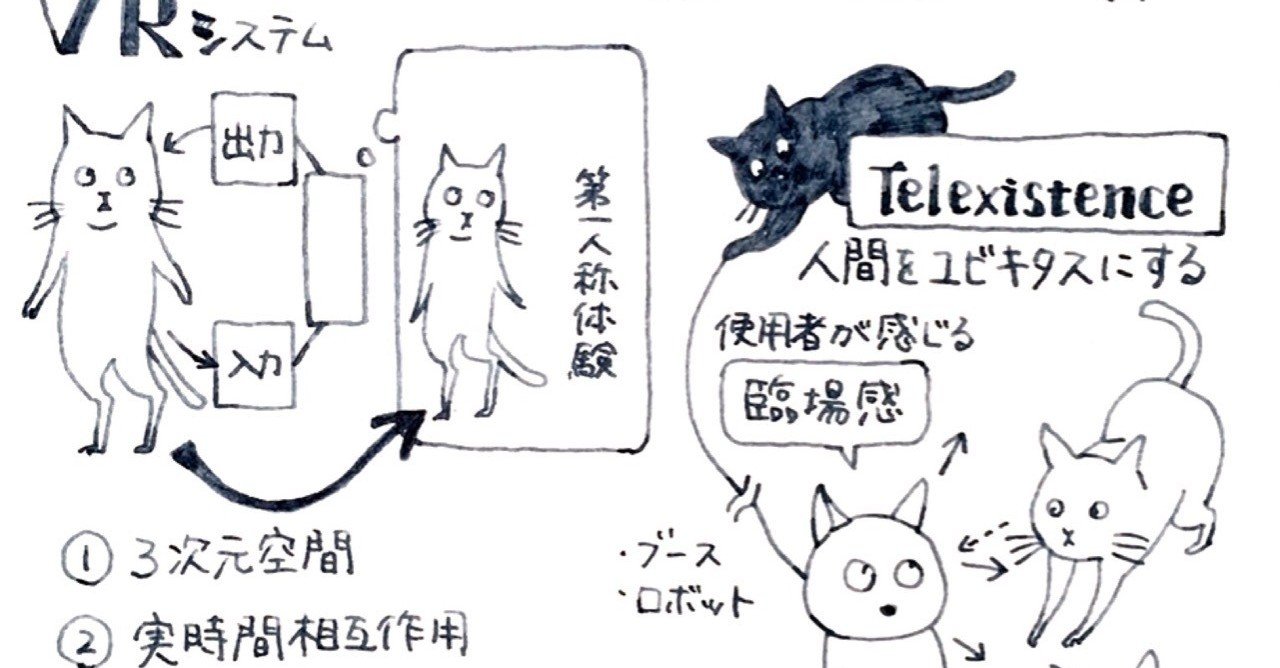 VRシステム
出力
入力
第一人称体験
① 3次元空間
② 実時間相互作用
Telexistence
人間をユビキタスにする
使用者が感じる
臨場感
・ブース
・ロボット